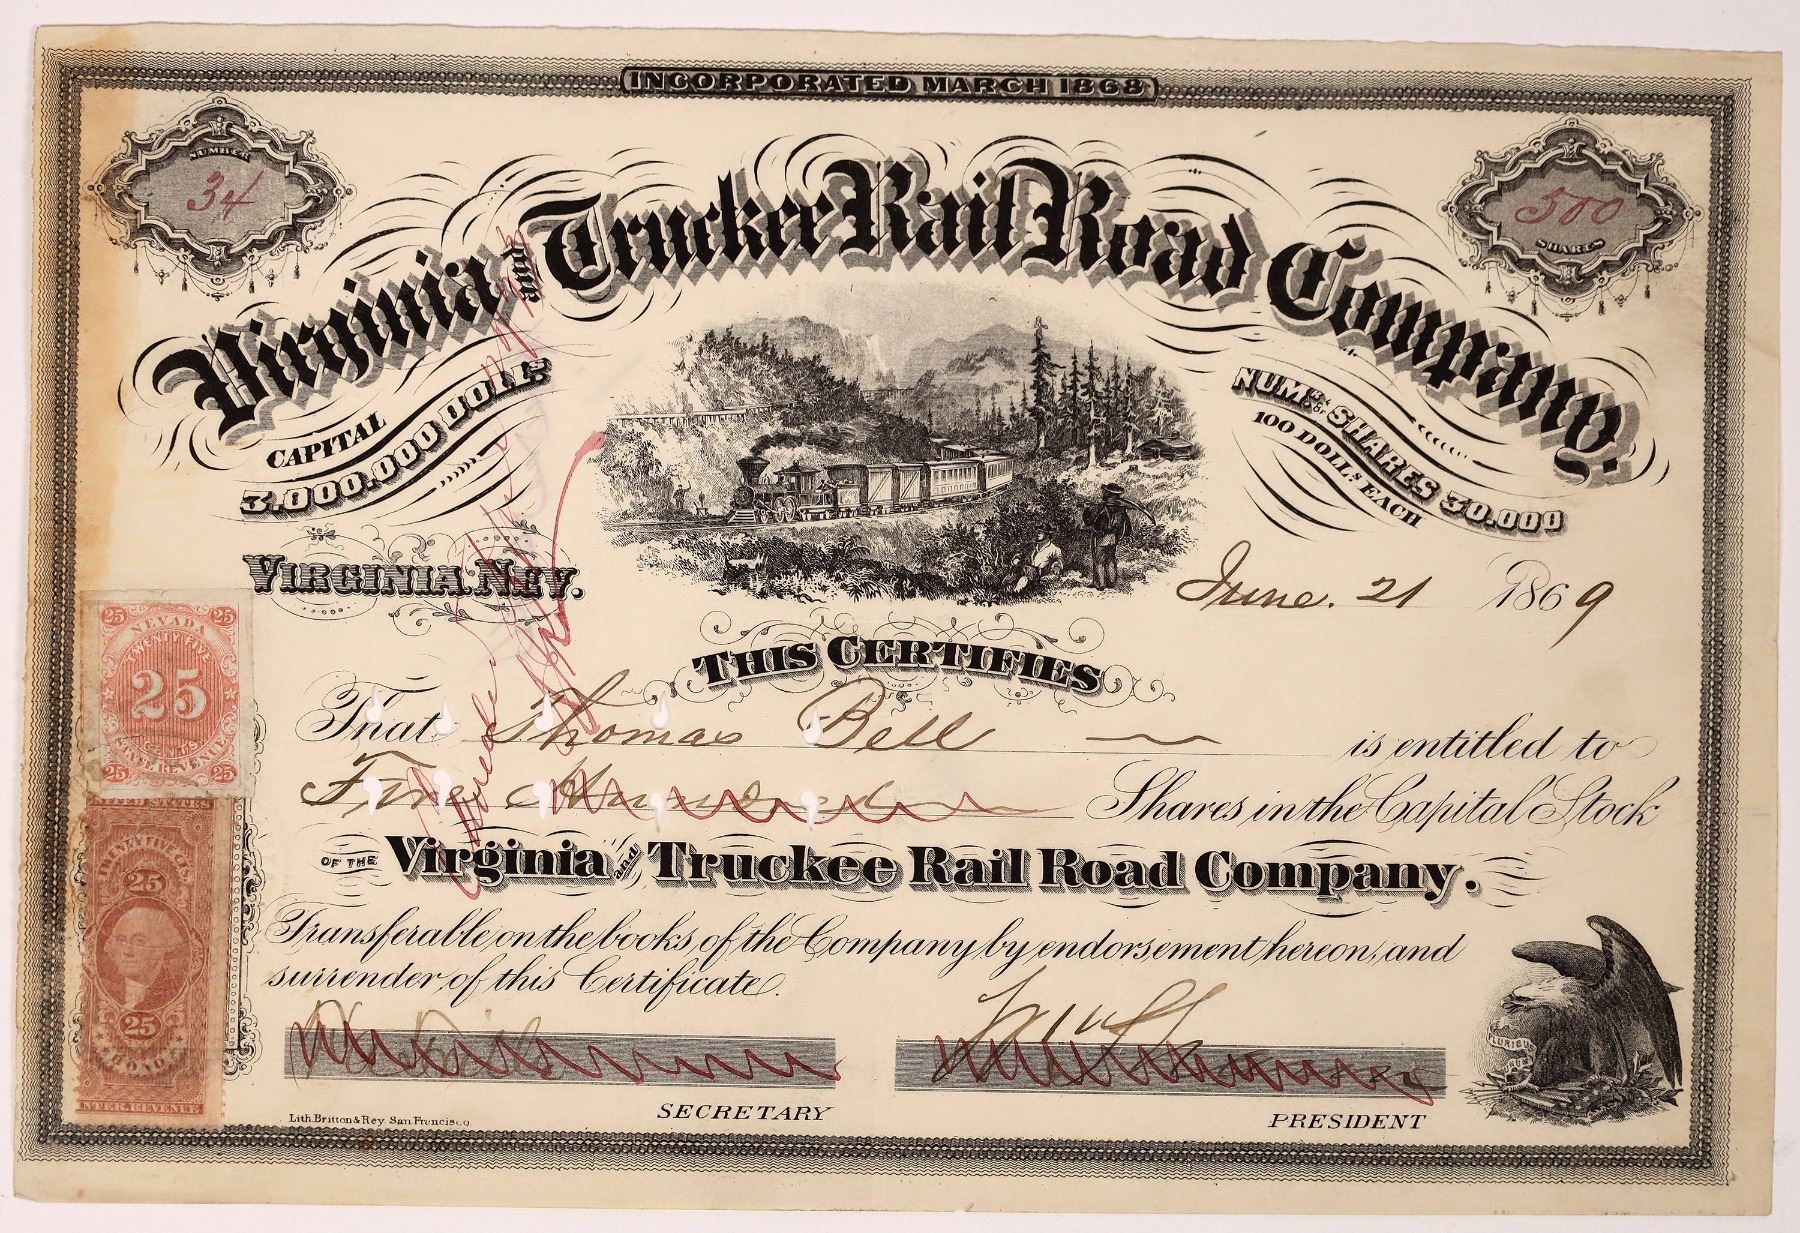 INCORPORATED MARCH 1868
NUMBER
34
500
SHARES
Virginia and Truckee Rail Road Company.
CAPITAL
3,000,000 DOLLS.
NUMBR. OF SHARES 30,000
100 DOLLS. EACH
VIRGINIA. NEV.
June. 21 1869
THIS CERTIFIES
That Thomas Bell is entitled to
Five Hundred Shares in the Capital Stock
OF THE Virginia and Truckee Rail Road Company.
Transferable on the books of the Company by endorsement hereon, and
surrender of this Certificate.
SECRETARY
PRESIDENT
Lith. Britton & Rey. San Francisco
25 25
NEVADA
TWENTY FIVE
25
CENTS
STATE REVENUE
25 25
UNITED STATES
TWENTY FIVE CTS.
25
25
BOND
INTER. REVENUE